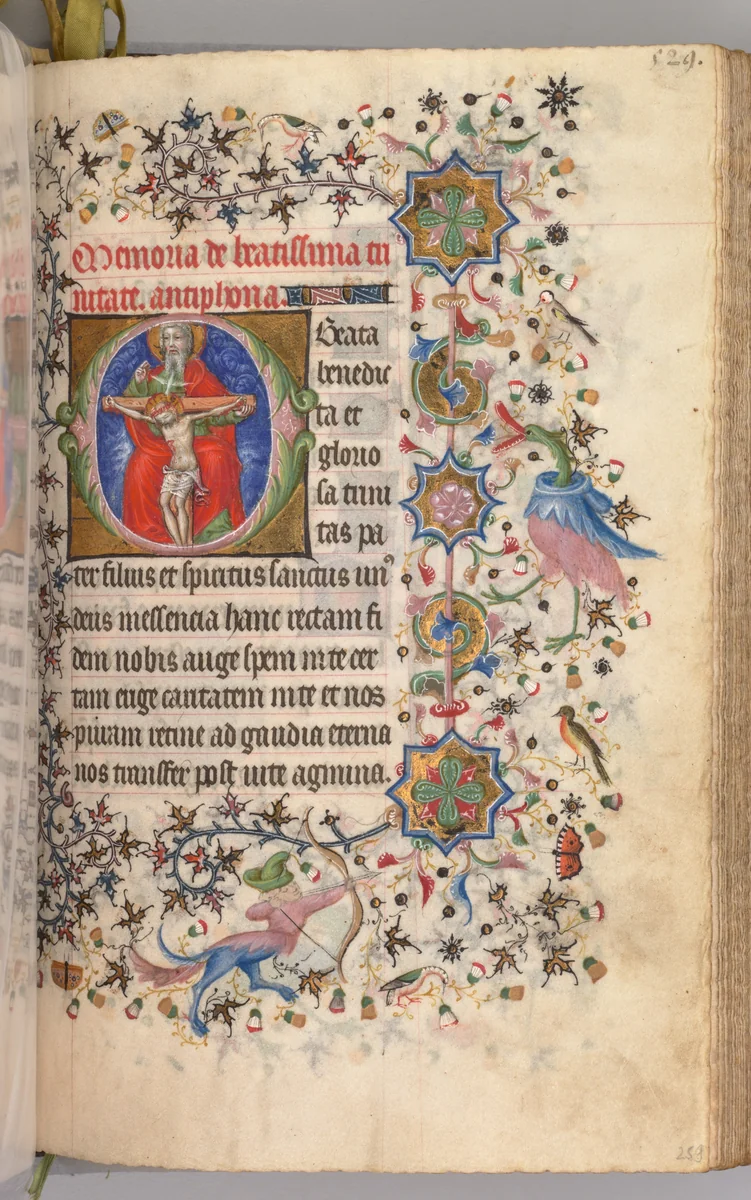 529.
Memoria de beatissima tri
nitate. antiphona.
O Beata
benedic
ta et
glorio
sa trini
tas pa
ter filius et spiritus sanctus un⁹
deus messencia hanc rectam fi
dem nobis auge spem in te cer
tam euge caritatem in te et nos
puram retine ad gaudia eterna
nos transfer post vite agmina.
259